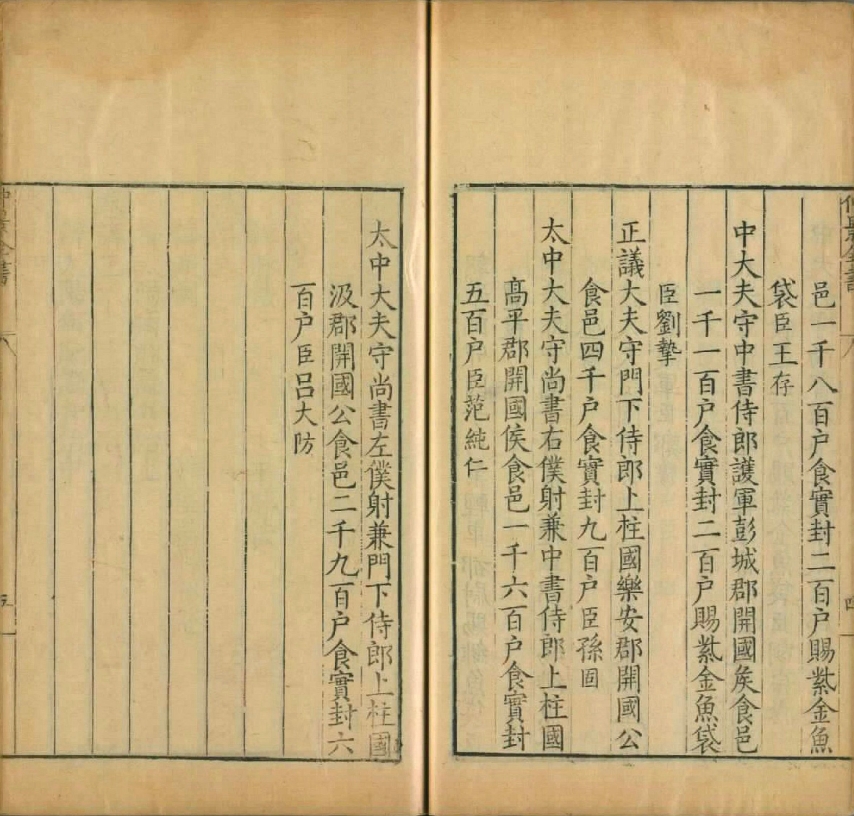 邑一千八百户食實封二百户賜紫金魚
袋臣王存
中大夫守中書侍郎護軍彭城郡開國矦食邑
一千一百户食實封二百户賜紫金魚袋
臣劉摯
正議大夫守門下侍郎上柱國樂安郡開國公
食邑四千户食實封九百户臣孫固
太中大夫守尚書右僕射兼中書侍郎上柱國
髙平郡開國侯食邑一千六百户食實封
五百户臣范純仁
太中大夫守尚書左僕射兼門下侍郎上柱國
汲郡開國公食邑二千九百户食實封六
百户臣吕大防
五